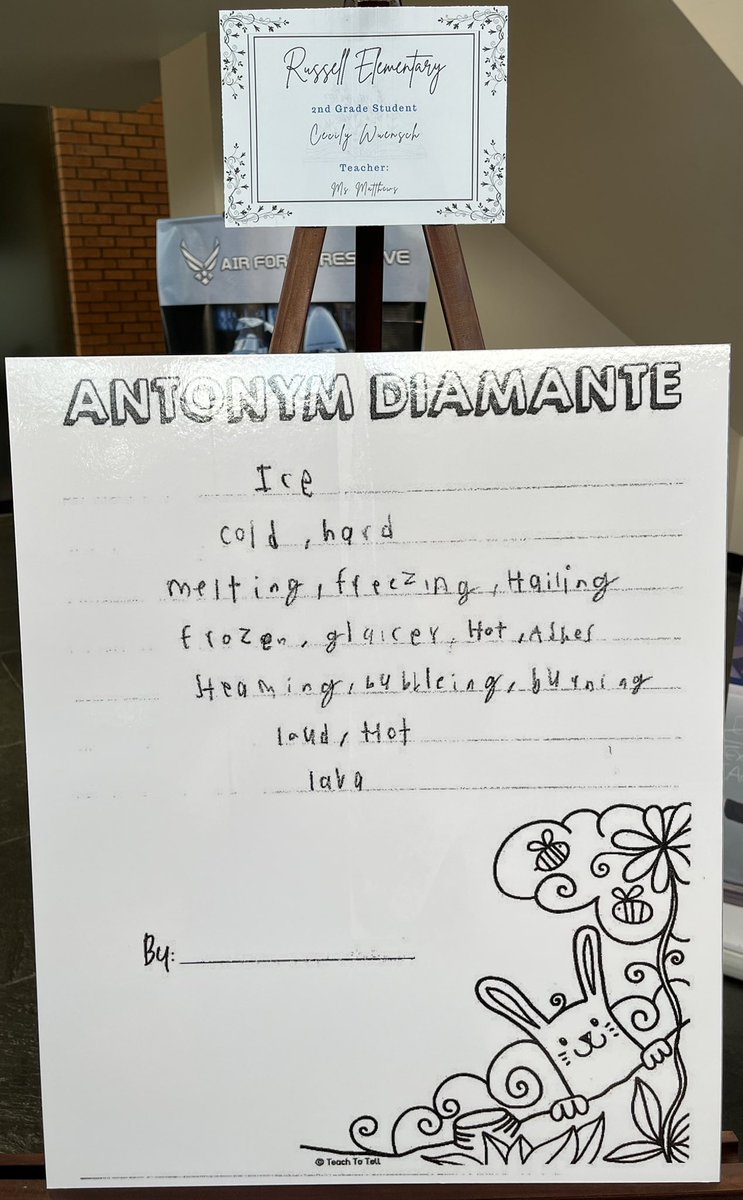 Russell Elementary
2nd Grade Student
Cecily Wuensch
Teacher:
Ms Matthews
AIR FOR RESERVE
ANTONYM DIAMANTE
Ice
cold, hard
melting, freezing, Hailing
frozen, glaicer, Hot, Ashes
steaming, bubbleing, burning
loud, Hot
lava
By:
© Teach To Tell